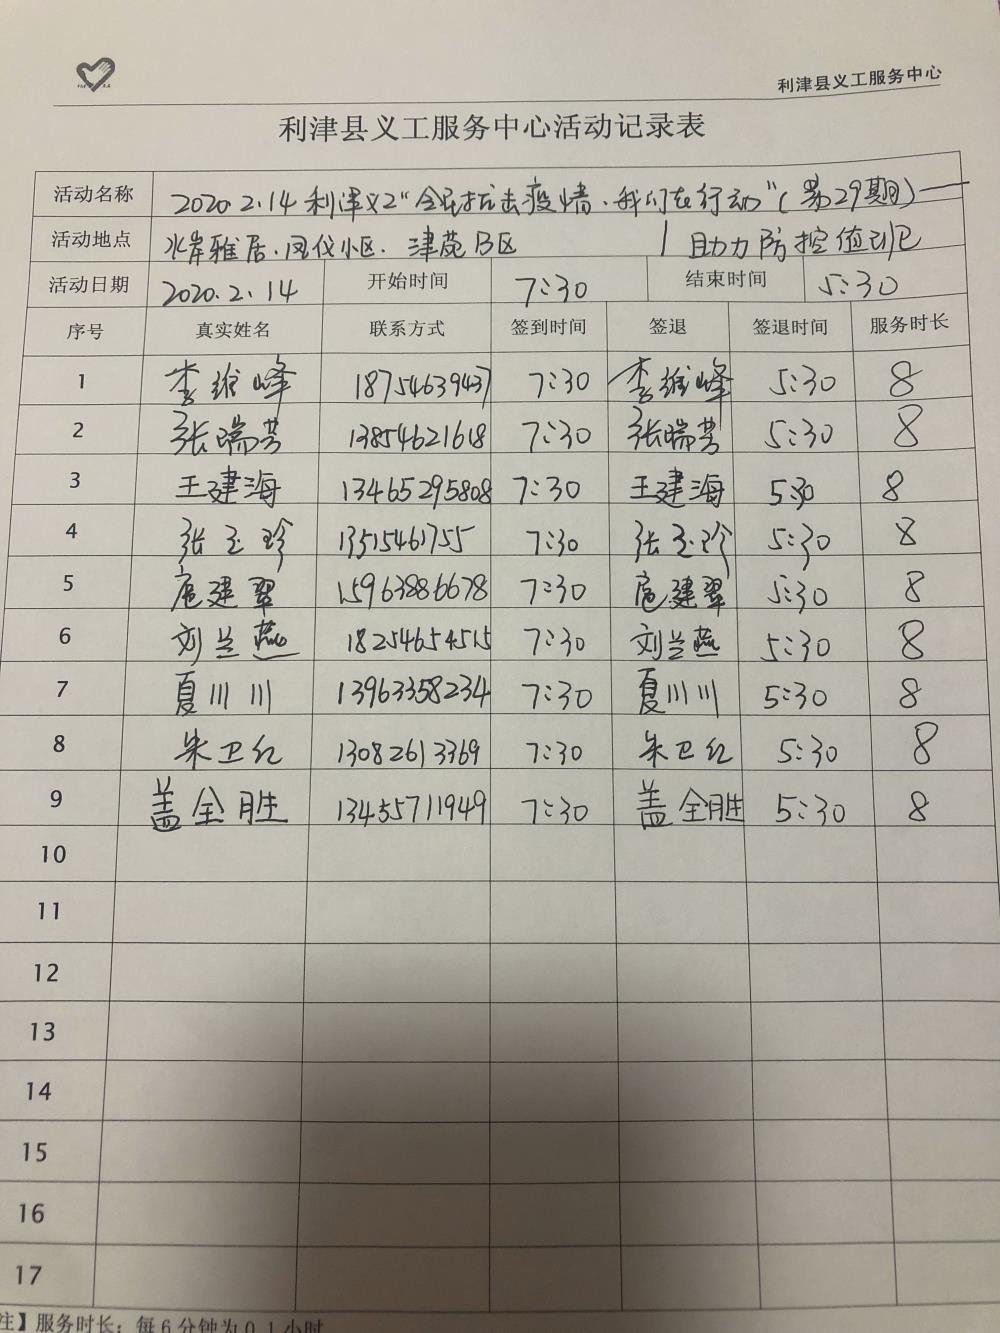 利津县义工服务中心
利津县义工服务中心活动记录表
活动名称 2020.2.14利津义工"全民抗击疫情、我们在行动"(第29期)——
活动地点 水岸雅居、凤仪小区、津苑B区 助力防控值班
活动日期 2020.2.14 开始时间 7:30 结束时间 5:30
序号 真实姓名 联系方式 签到时间 签退 签退时间 服务时长
1 李维峰 18754639437 7:30 李维峰 5:30 8
2 张瑞芳 13854621618 7:30 张瑞芳 5:30 8
3 王建海 13465295808 7:30 王建海 5:30 8
4 张玉珍 13515461755 7:30 张玉珍 5:30 8
5 扈建翠 15963886678 7:30 扈建翠 5:30 8
6 刘兰燕 18254654515 7:30 刘兰燕 5:30 8
7 夏川川 13963358234 7:30 夏川川 5:30 8
8 朱卫红 13082613369 7:30 朱卫红 5:30 8
9 盖全胜 13455711949 7:30 盖全胜 5:30 8
10
11
12
13
14
15
16
17
注】服务时长：每6分钟为0.1小时